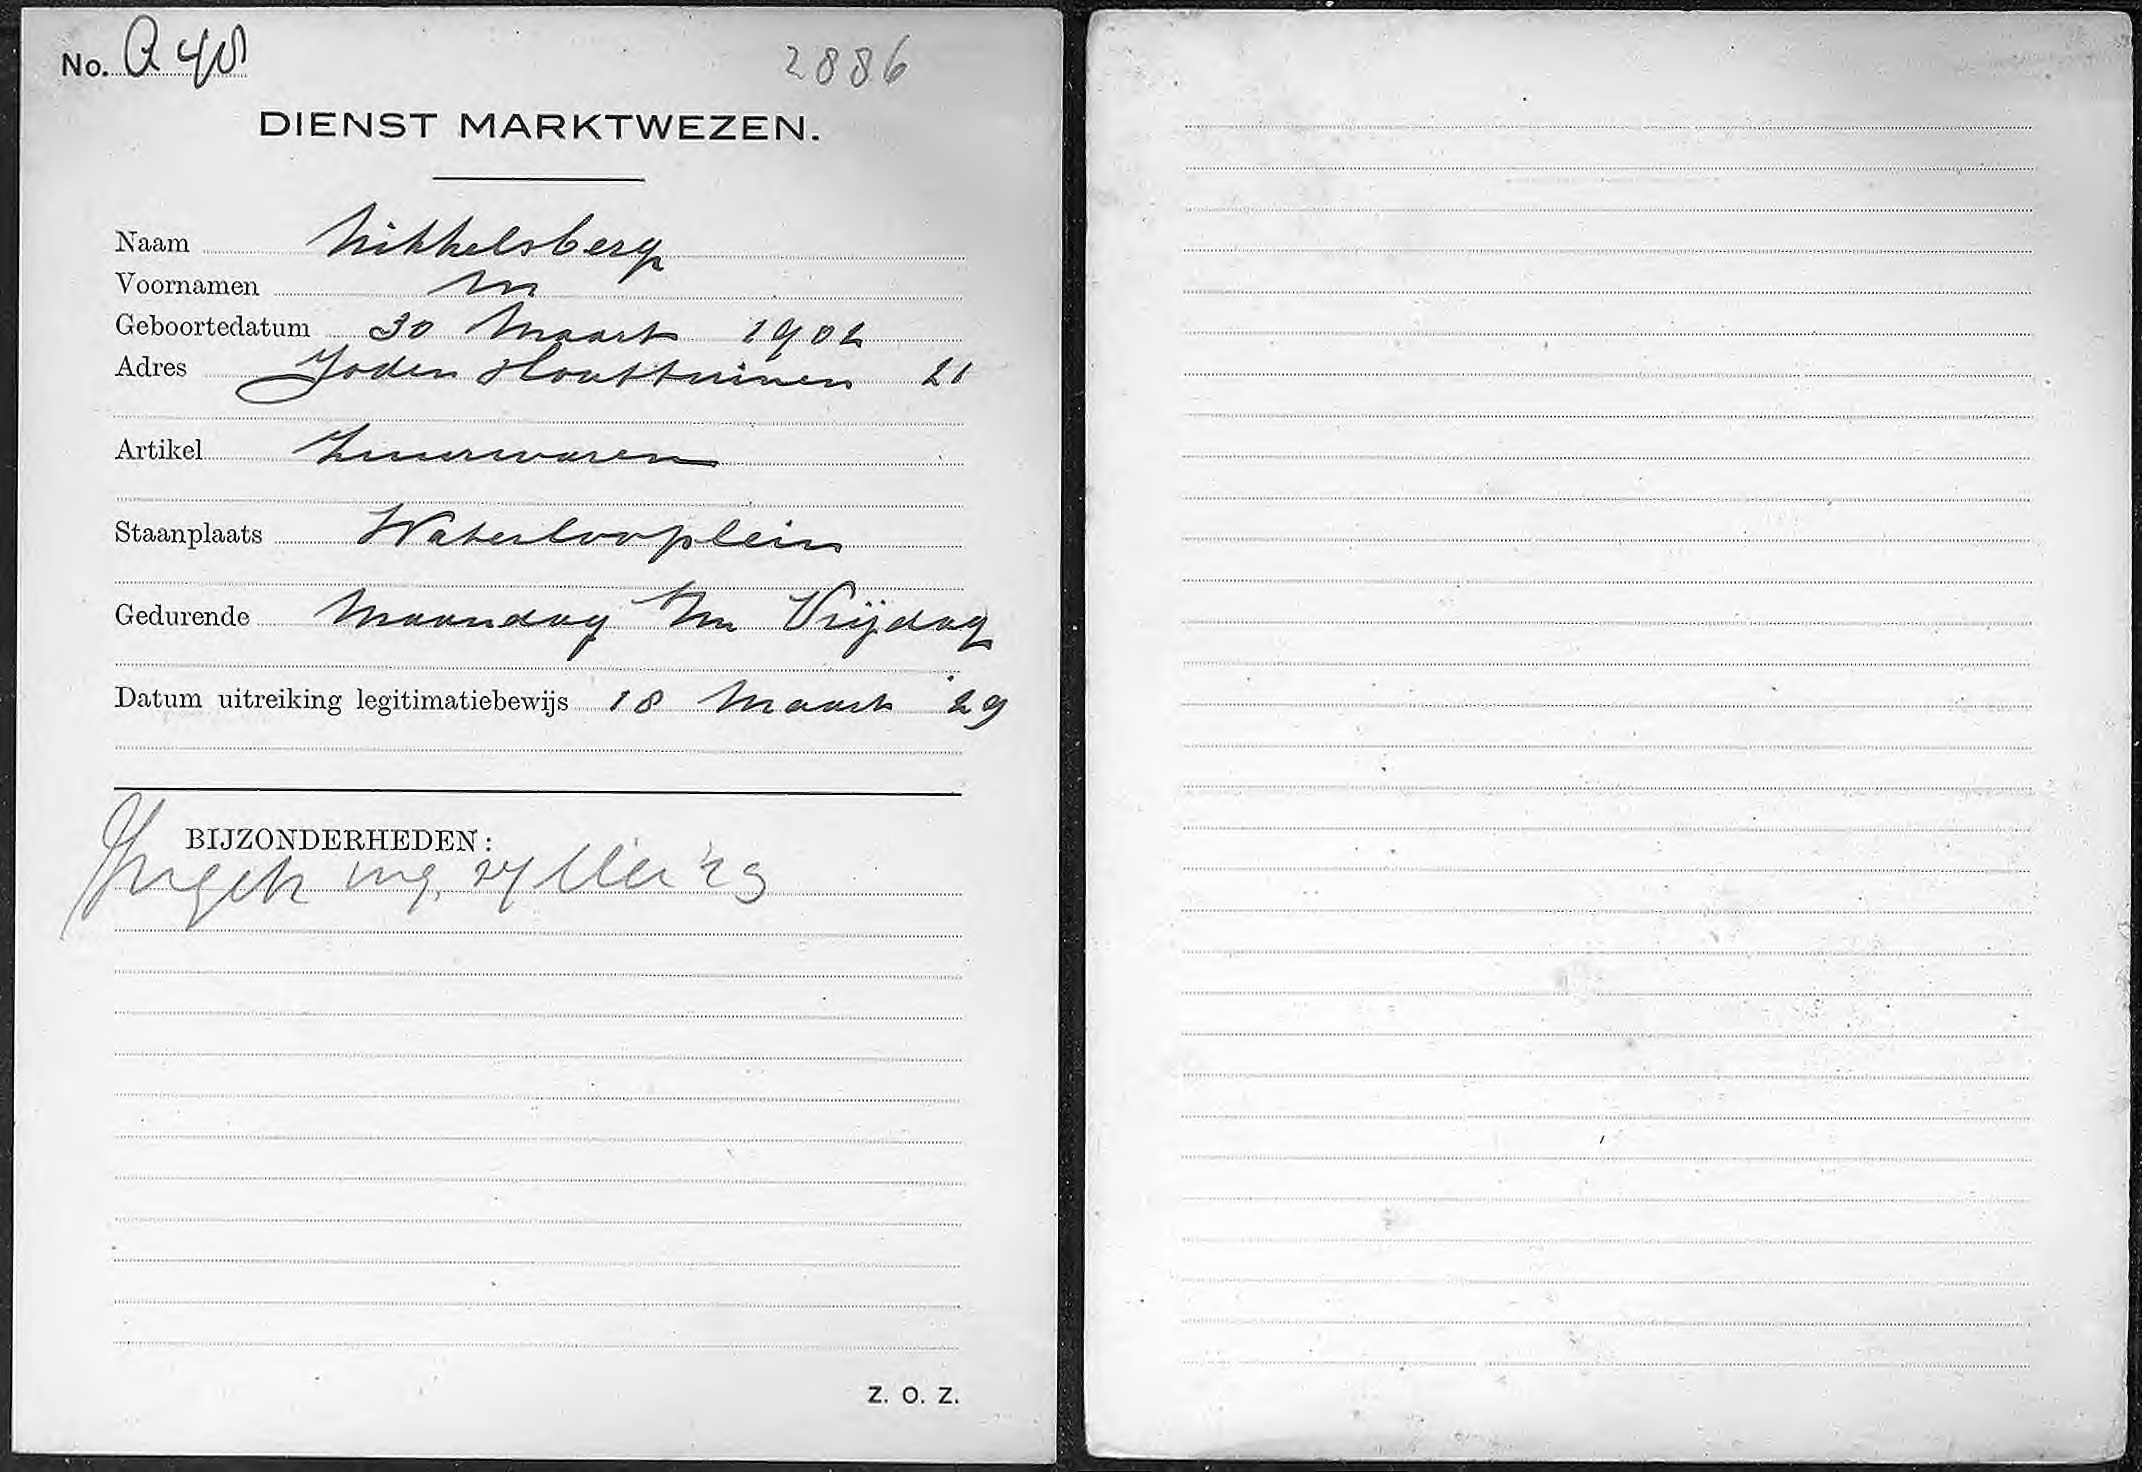 No. A 48
2886
DIENST MARKTWEZEN.
Naam Nikkelsberg
Voornamen M
Geboortedatum 30 Maart 1902
Adres Joden Houttuinen 21
Artikel
Staanplaats Waterlooplein
Gedurende Maandag t/m Vrijdag
Datum uitreiking legitimatiebewijs 18 Maart '29
BIJZONDERHEDEN:
Ingetr ing. '29
Z. O. Z.